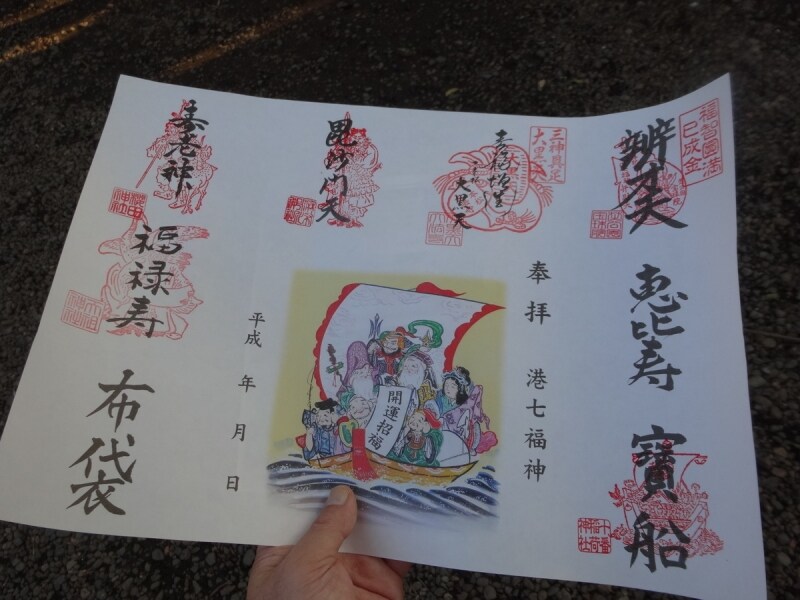 辨才天
福智圓満
巳成金
恵比寿
寳船
大黒天
三神具足
毘沙門天
寿老神
福禄寿
布袋
奉拝 港七福神
開運招福
平成 年 月 日